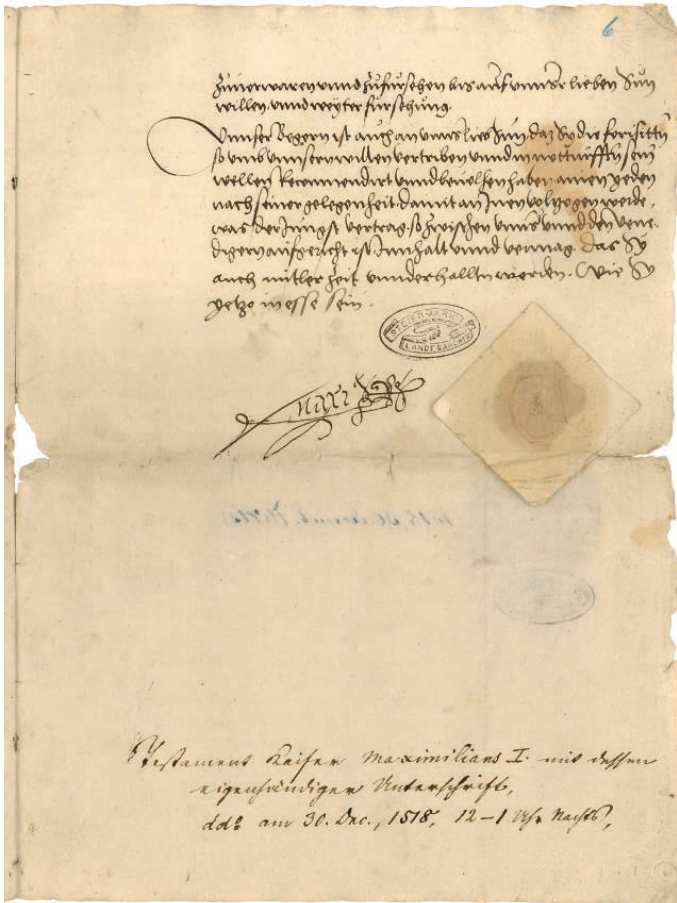 6
zuuerwaren vnnd zufursehen bis auf vnnser lieben Sun
willen, vnnd weyter fursehung.
Vnnser Begern ist auch an vnns lieb Sun, daz Sy die
so vmb vnnsern willen vertriben vnnd in sein
wellen Recommendirt vnnd beuolhen haben ainen yeden
nach seiner gelegenheit, damit an Inen volzogen werde,
was der Jungst vertrag, so zwischen vnns vnnd den Vene-
digern aufgericht ist, Innhalt vnnd vermag. Das Sy
auch mitler zeit vnnderhalltn werden. Wie Sy
yetzo in esse sein.
STEIERMARK
LANDESARCHIV
Maxi
Testament Kaiser Maximilians I. mit dessen
eigenhändiger Unterschrift,
ddo am 30. Dec., 1518, 12–1 Uhr Nachts,